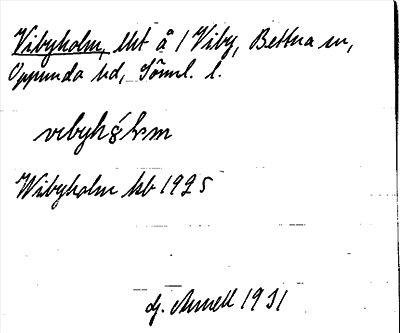 Vibyholm, lht å 1 Viby, Bettna sn,
Oppunda hd, Söml. l.
vibyhó̤ḷm
Wibyholm kb 1925
dj. Arnell 1931